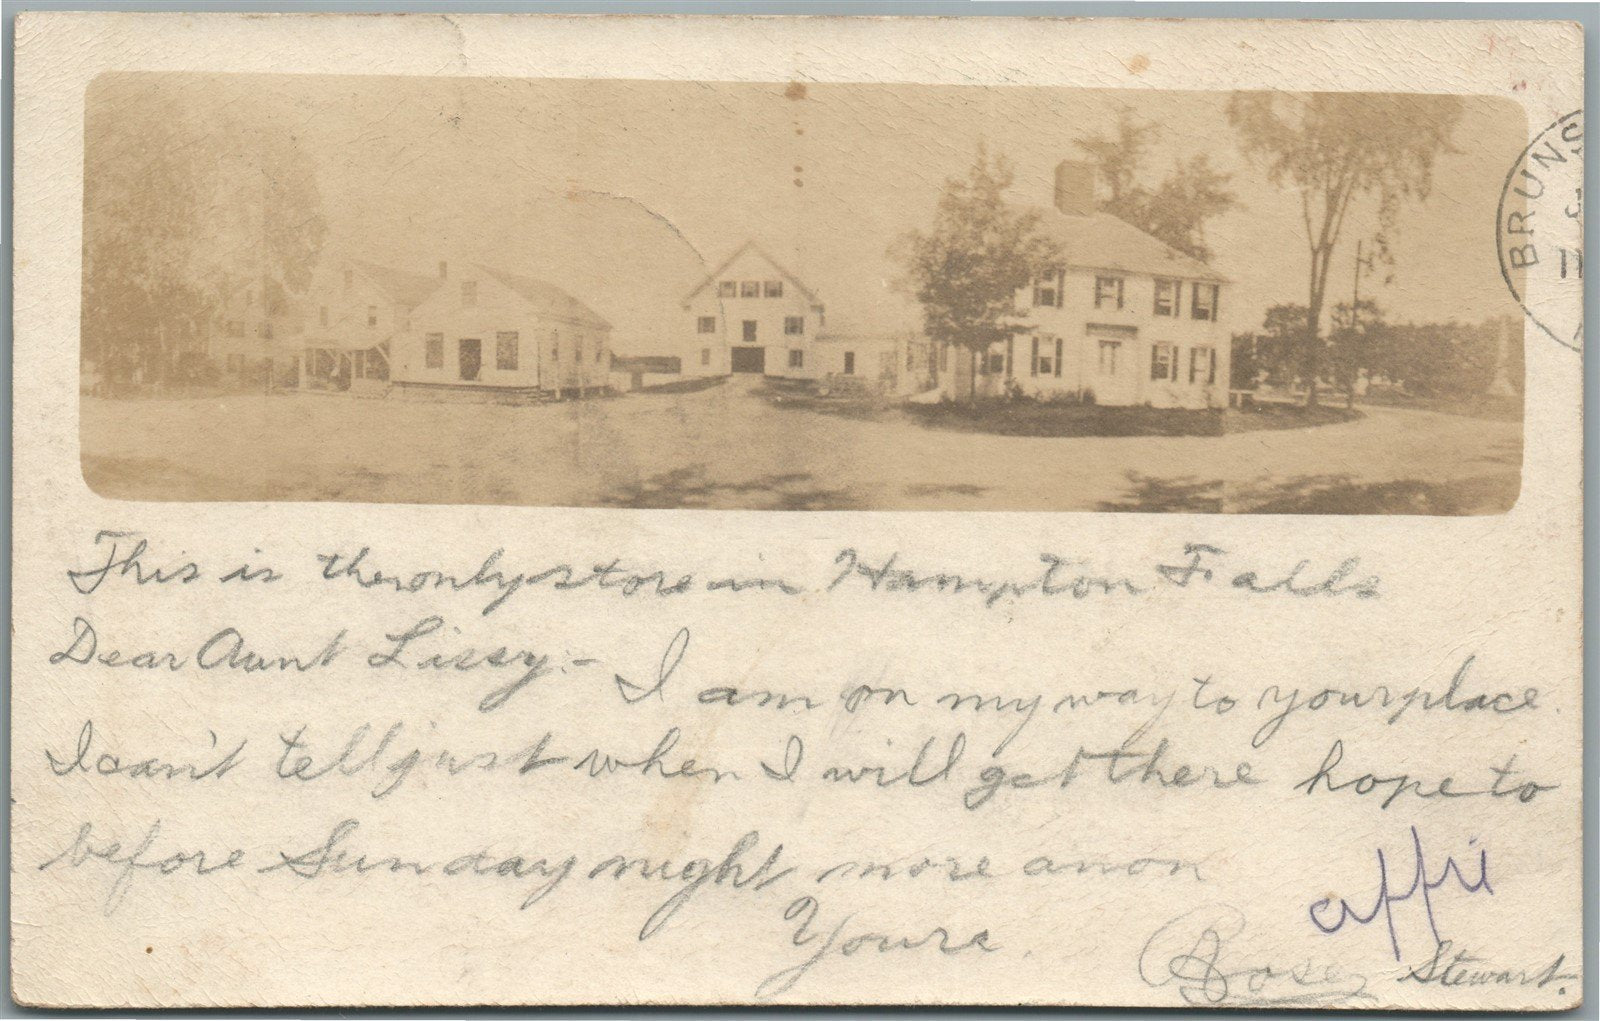 BRUNS
This is the only store in Hampton Falls
Dear Aunt Lissy:-
I am on my way to your place.
I can't tell just when I will get there hope to
before Sunday night more anon
Yours
Rose Stewart.